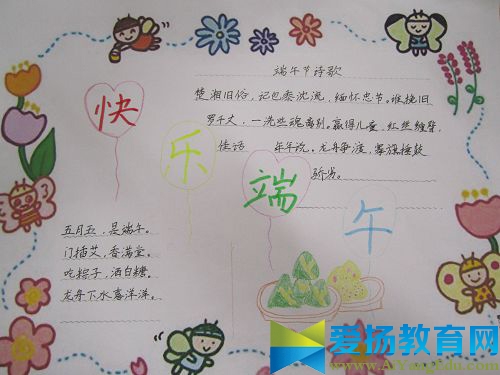 快乐端午
端午节诗歌
楚湘旧俗，记包黍沈流，缅怀忠节。谁挽汨
罗千丈，一洗些魂离别。赢得儿童，红丝缠臂，
佳话年年说。龙舟争渡，搴旗捶鼓
骄劣。
五月五，是端午。
门插艾，香满堂。
吃粽子，洒白糖。
龙舟下水喜洋洋。
爱扬教育网
www.AiYangEdu.com